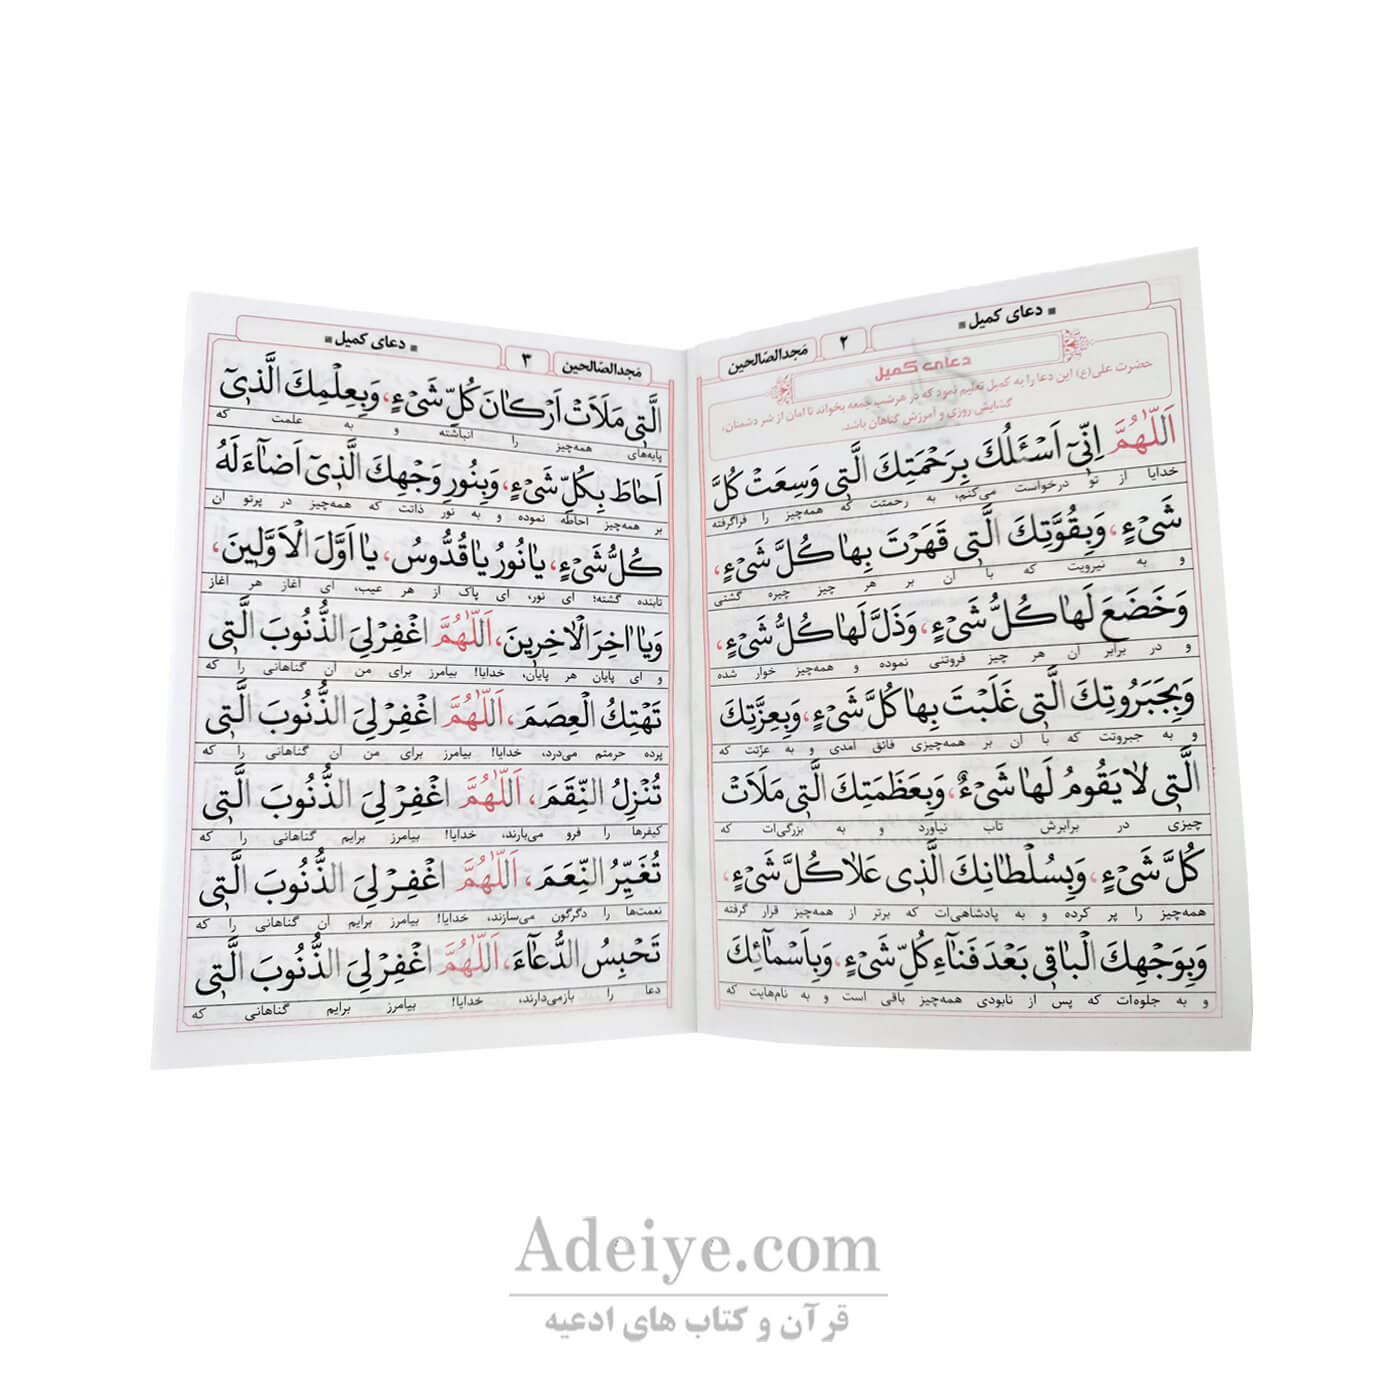 دعای کمیل
۲
مجدالصّالحین
دعای کمیل
حضرت علی(ع) این دعا را به کمیل تعلیم نمود که در هر شب جمعه بخواند تا امان از شر دشمنان،
گشایش روزی و آمرزش گناهان باشد.
اَللّٰهُمَّ اِنّىٓ اَسْئَلُكَ بِرَحْمَتِكَ الَّتى وَسِعَتْ كُلَّ
خدایا از تو درخواست می‌کنم، به رحمتت که همه‌چیز را فراگرفته
شَىْءٍ، وَبِقُوَّتِكَ الَّتى قَهَرْتَ بِهٰا كُلَّ شَىْءٍ،
و به نیرویت که با آن بر هر چیز چیره گشتی
وَخَضَعَ لَهٰا كُلُّ شَىْءٍ، وَذَلَّ لَهٰا كُلُّ شَىْءٍ،
و در برابر آن هر چیز فروتنی نموده و همه‌چیز خوار شده
وَبِجَبَرُوتِكَ الَّتى غَلَبْتَ بِهٰا كُلَّ شَىْءٍ، وَبِعِزَّتِكَ
و به جبروتت که با آن بر همه‌چیزی فائق آمدی و به عزّتت که
الَّتى لٰا يَقُومُ لَهٰا شَىْءٌ، وَبِعَظَمَتِكَ الَّتى مَلَاَتْ
چیزی در برابرش تاب نیاورد و به بزرگی‌ات که
كُلَّ شَىْءٍ، وَبِسُلْطٰانِكَ الَّذى عَلٰا كُلَّ شَىْءٍ،
همه‌چیز را پر کرده و به پادشاهی‌ات که برتر از همه‌چیز قرار گرفته
وَبِوَجْهِكَ الْبٰاقى بَعْدَ فَنٰآءِ كُلِّ شَىْءٍ، وَبِاَسْمٰآئِكَ
و به جلوه‌ات که پس از نابودی همه‌چیز باقی است و به نام‌هایت که
مجدالصّالحین
۳
دعای کمیل
الَّتى مَلَاَتْ اَرْكٰانَ كُلِّ شَىْءٍ، وَبِعِلْمِكَ الَّذىٓ
پایه‌های همه‌چیز را انباشته و به علمت که
اَحٰاطَ بِكُلِّ شَىْءٍ، وَبِنُورِ وَجْهِكَ الَّذىٓ اَضٰآءَ لَهُ
بر همه‌چیز احاطه نموده و به نور ذاتت که همه‌چیز در پرتو آن
كُلُّ شَىْءٍ، يٰا نُورُ يٰا قُدُّوسُ، يٰا اَوَّلَ الْاَوَّلينَ،
تابنده گشته؛ ای نور، ای پاک از هر عیب، ای آغاز هر آغاز
وَيٰا اٰخِرَ الْاٰخِرينَ، اَللّٰهُمَّ اغْفِرْ لِىَ الذُّنُوبَ الَّتى
و ای پایان هر پایان، خدایا! بیامرز برای من آن گناهانی را که
تَهْتِكُ الْعِصَمَ، اَللّٰهُمَّ اغْفِرْ لِىَ الذُّنُوبَ الَّتى
پرده حرمتم می‌درد، خدایا! بیامرز برای من آن گناهانی را که
تُنْزِلُ النِّقَمَ، اَللّٰهُمَّ اغْفِرْ لِىَ الذُّنُوبَ الَّتى
کیفرها را فرو می‌بارند، خدایا! بیامرز برایم گناهانی را که
تُغَيِّرُ النِّعَمَ، اَللّٰهُمَّ اغْفِرْ لِىَ الذُّنُوبَ الَّتى
نعمت‌ها را دگرگون می‌سازند، خدایا! بیامرز برایم آن گناهانی را که
تَحْبِسُ الدُّعٰآءَ، اَللّٰهُمَّ اغْفِرْ لِىَ الذُّنُوبَ الَّتى
دعا را بازمی‌دارند، خدایا! بیامرز برایم گناهانی که
Adeiye.com
قرآن و کتاب های ادعیه